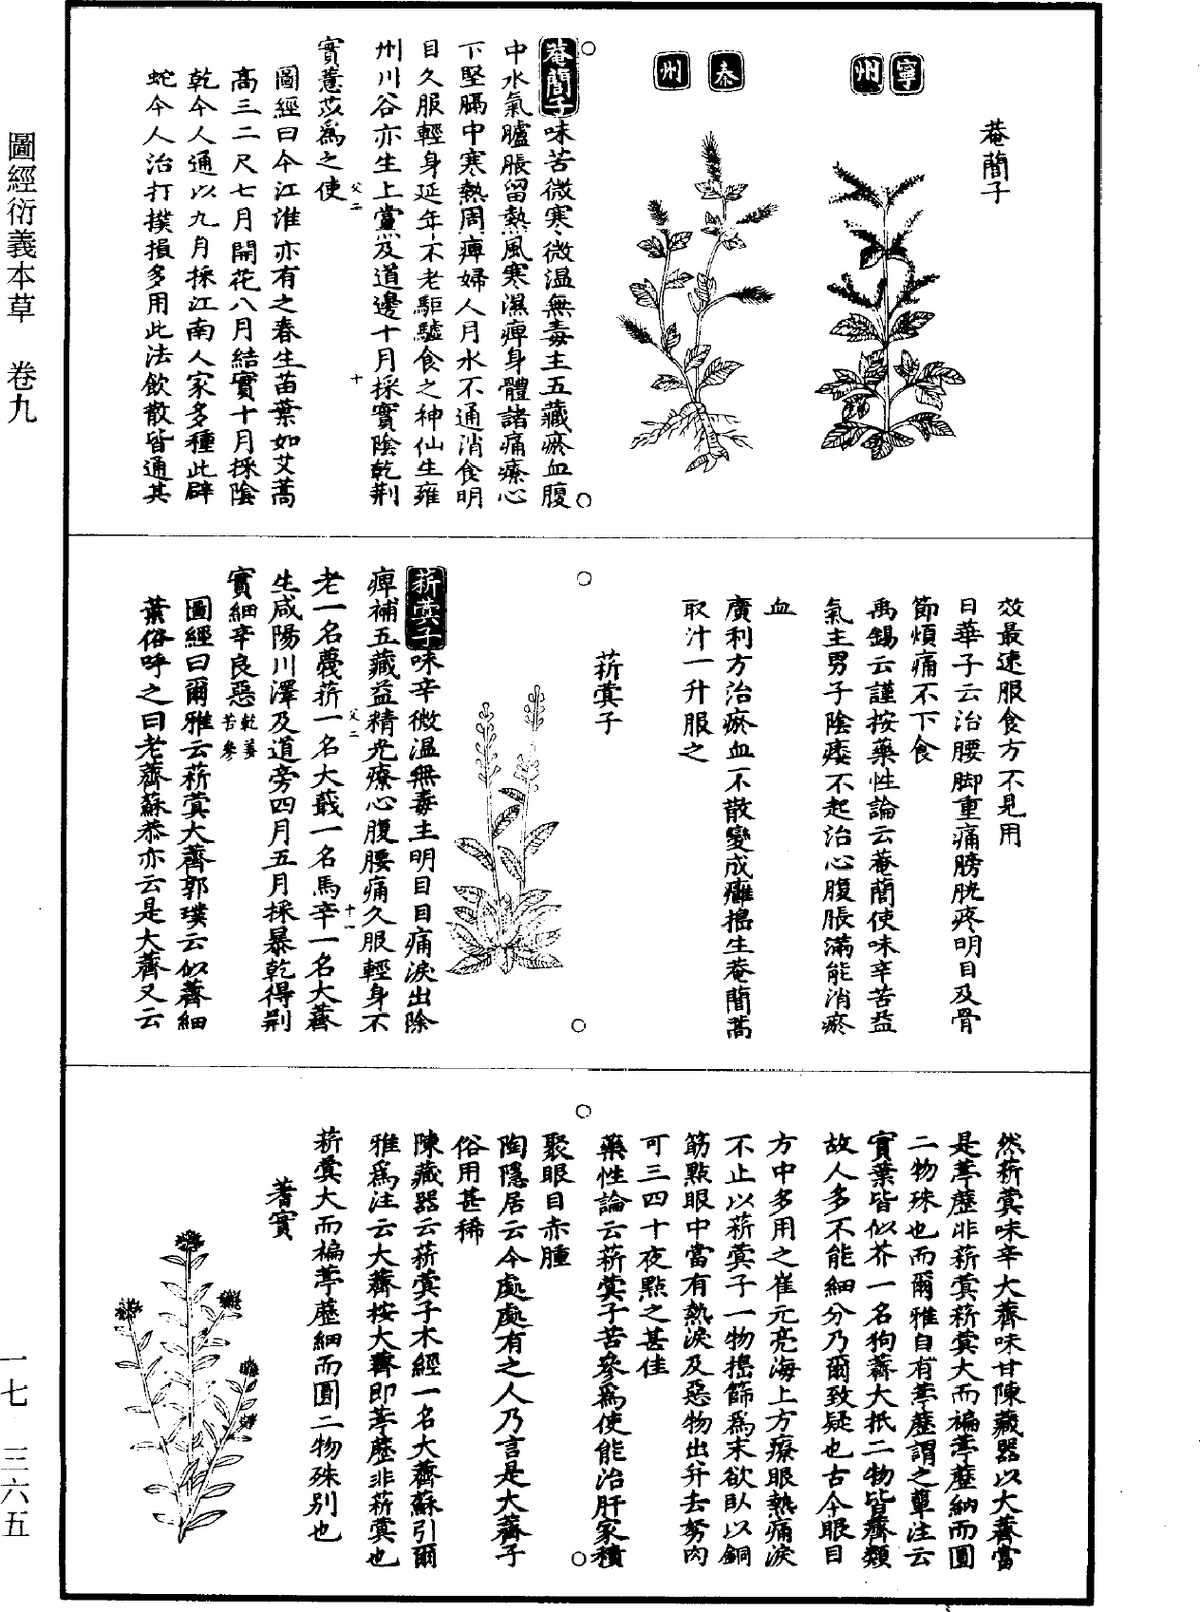 圖經衍義本草　卷九
一七—三六五
菴䕡子
寧州
秦州
菴䕡子味苦微寒微温無毒主五藏瘀血腹
中水氣臚脹留熱風寒濕痺身體諸痛療心
下堅膈中寒熱周痺婦人月水不通消食明
目久服輕身延年不老驅驢食之神仙生雍
州川谷亦生上黨及道邊十月採實陰乾荆
實薏苡爲之使
父二
十
圖經曰今江淮亦有之春生苗葉如艾蒿
高三二尺七月開花八月結實十月採陰
乾今人通以九月採江南人家多種此辟
蛇今人治打撲損多用此法飲散皆通其
效最速服食方不見用
日華子云治腰脚重痛膀胱疼明目及骨
節煩痛不下食
禹錫云謹按藥性論云菴䕡使味辛苦益
氣主男子陰痿不起治心腹脹滿能消瘀
血
廣利方治瘀血不散變成癰搗生菴䕡蒿
取汁一升服之
菥蓂子
菥蓂子味辛微温無毒主明目目痛淚出除
痺補五藏益精光療心腹腰痛久服輕身不
老一名蔑菥一名大蕺一名馬辛一名大薺
生咸陽川澤及道旁四月五月採暴乾得荆
實細辛良惡乾薑苦參
父二
十一
圖經曰爾雅云菥蓂大薺郭璞云似薺細
葉俗呼之曰老薺蘇恭亦云是大薺又云
然菥蓂味辛大薺味甘陳藏器以大薺當
是葶藶非菥蓂菥蓂大而褊葶藶細而圓
二物殊也而爾雅自有葶藶謂之蕇注云
實葉皆似芥一名狗薺大抵二物皆薺類
故人多不能細分乃爾致疑也古今眼目
方中多用之崔元亮海上方療眼熱痛淚
不止以菥蓂子一物搗篩爲末欲卧以銅
筋點眼中當有熱淚及惡物出并去努肉
可三四十夜點之甚佳
藥性論云菥蓂子苦參爲使能治肝家積
聚眼目赤腫
陶隱居云今處處有之人乃言是大薺子
俗用甚稀
陳藏器云菥蓂子木經一名大薺蘇引爾
雅爲注云大薺按大薺即葶藶非菥蓂也
菥蓂大而褊葶藶細而圓二物殊别也
蓍實